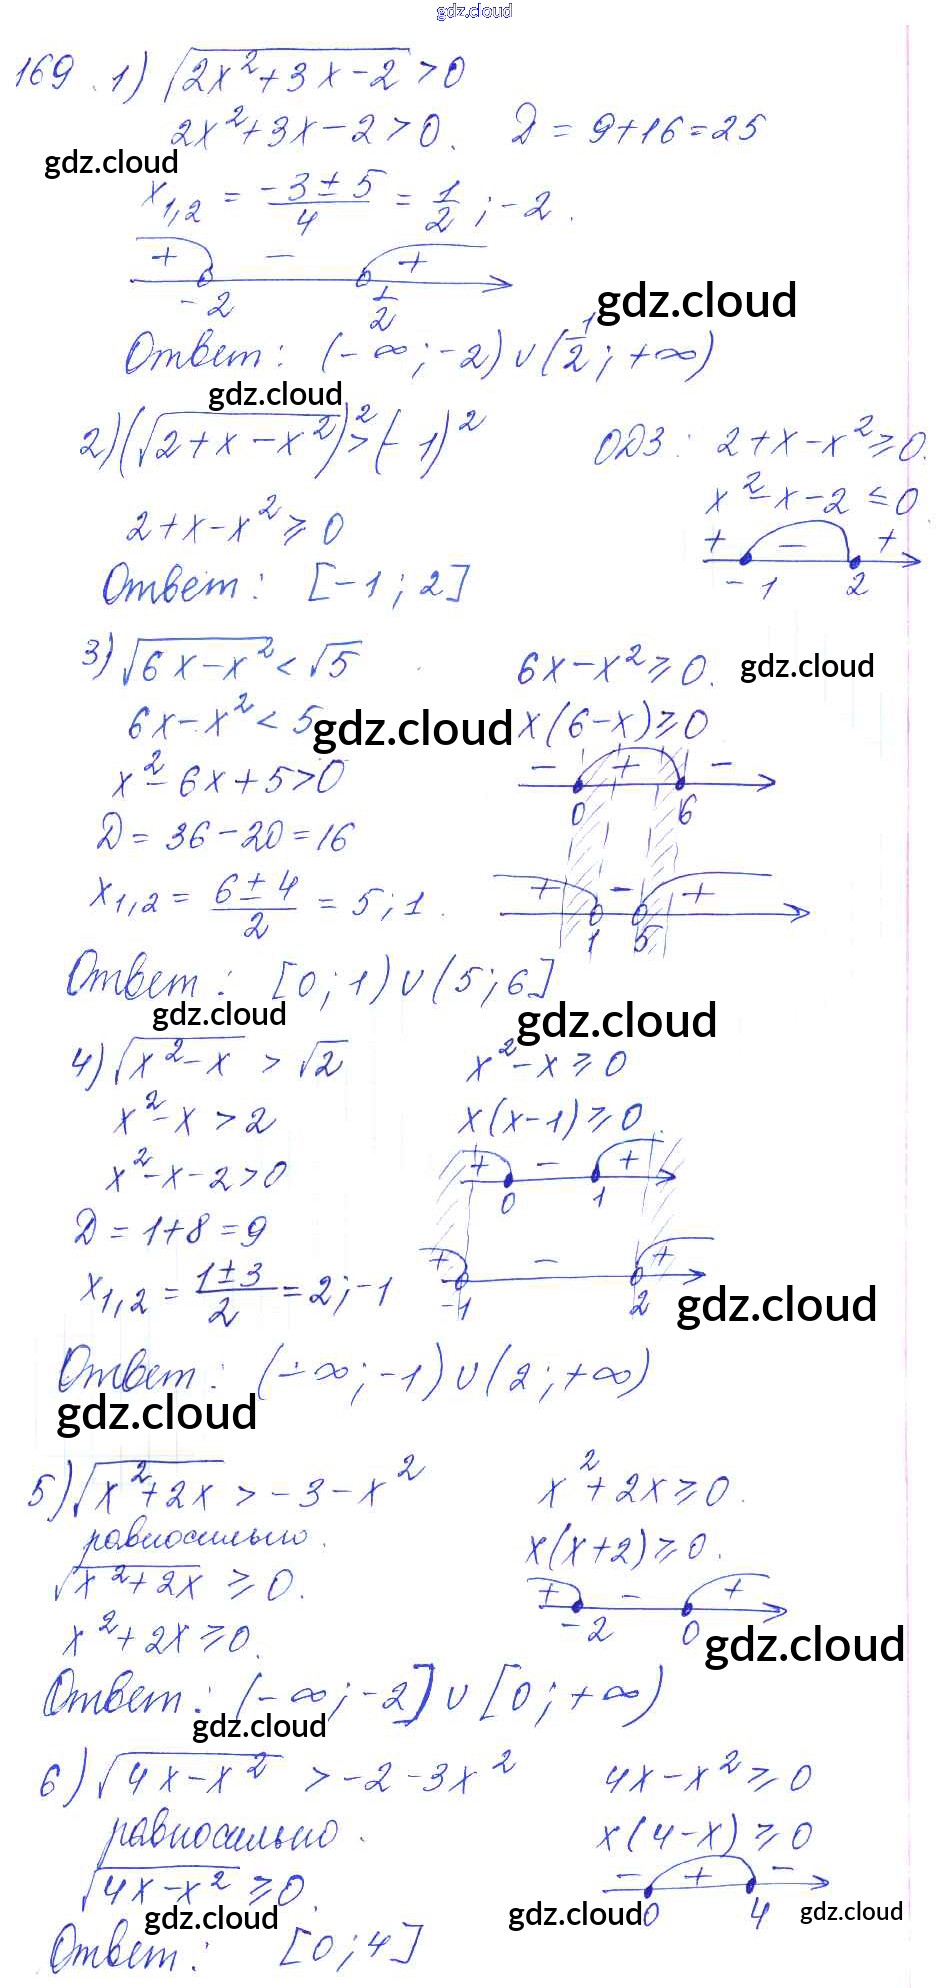 gdz.cloud
169. 1) √(2x²+3x-2) > 0
2x²+3x-2>0. Д = 9+16=25
gdz.cloud
x₁,₂ = (-3±5)/4 = 1/2 ; -2.
+ - +
-2 1/2
gdz.cloud
Ответ: (-∞; -2) ∪ (1/2; +∞)
gdz.cloud
2) (√(2+x-x²))² > (-1)² ОДЗ: 2+x-x² ≥ 0.
x²-x-2 ≤ 0
2+x-x² ≥ 0
+ - +
-1 2
Ответ: [-1; 2]
3) √(6x-x²) < √5 6x-x² ≥ 0.
gdz.cloud
6x-x² < 5 gdz.cloud x(6-x) ≥ 0
x²-6x+5>0
- + -
0 6
Д = 36-20=16
x₁,₂ = (6±4)/2 = 5; 1.
+ - +
1 5
Ответ: [0; 1) ∪ (5; 6]
gdz.cloud gdz.cloud
4) √(x²-x) > √2 x²-x ≥ 0
x²-x > 2 x(x-1) ≥ 0.
x²-x-2>0
+ - +
0 1
Д = 1+8=9
+ - +
-1 2
x₁,₂ = (1±3)/2 = 2; -1
gdz.cloud
Ответ: (-∞; -1) ∪ (2; +∞)
gdz.cloud
5) √(x²+2x) > -3-x² x²+2x ≥ 0.
равносильно. x(x+2) ≥ 0.
√(x²+2x) ≥ 0.
+ - +
-2 0
x²+2x ≥ 0.
gdz.cloud
Ответ: (-∞; -2] ∪ [0; +∞)
gdz.cloud
6) √(4x-x²) > -2-3x² 4x-x² ≥ 0
равносильно. x(4-x) ≥ 0
√(4x-x²) ≥ 0.
- + -
0 4
gdz.cloud gdz.cloud gdz.cloud
Ответ: [0; 4]